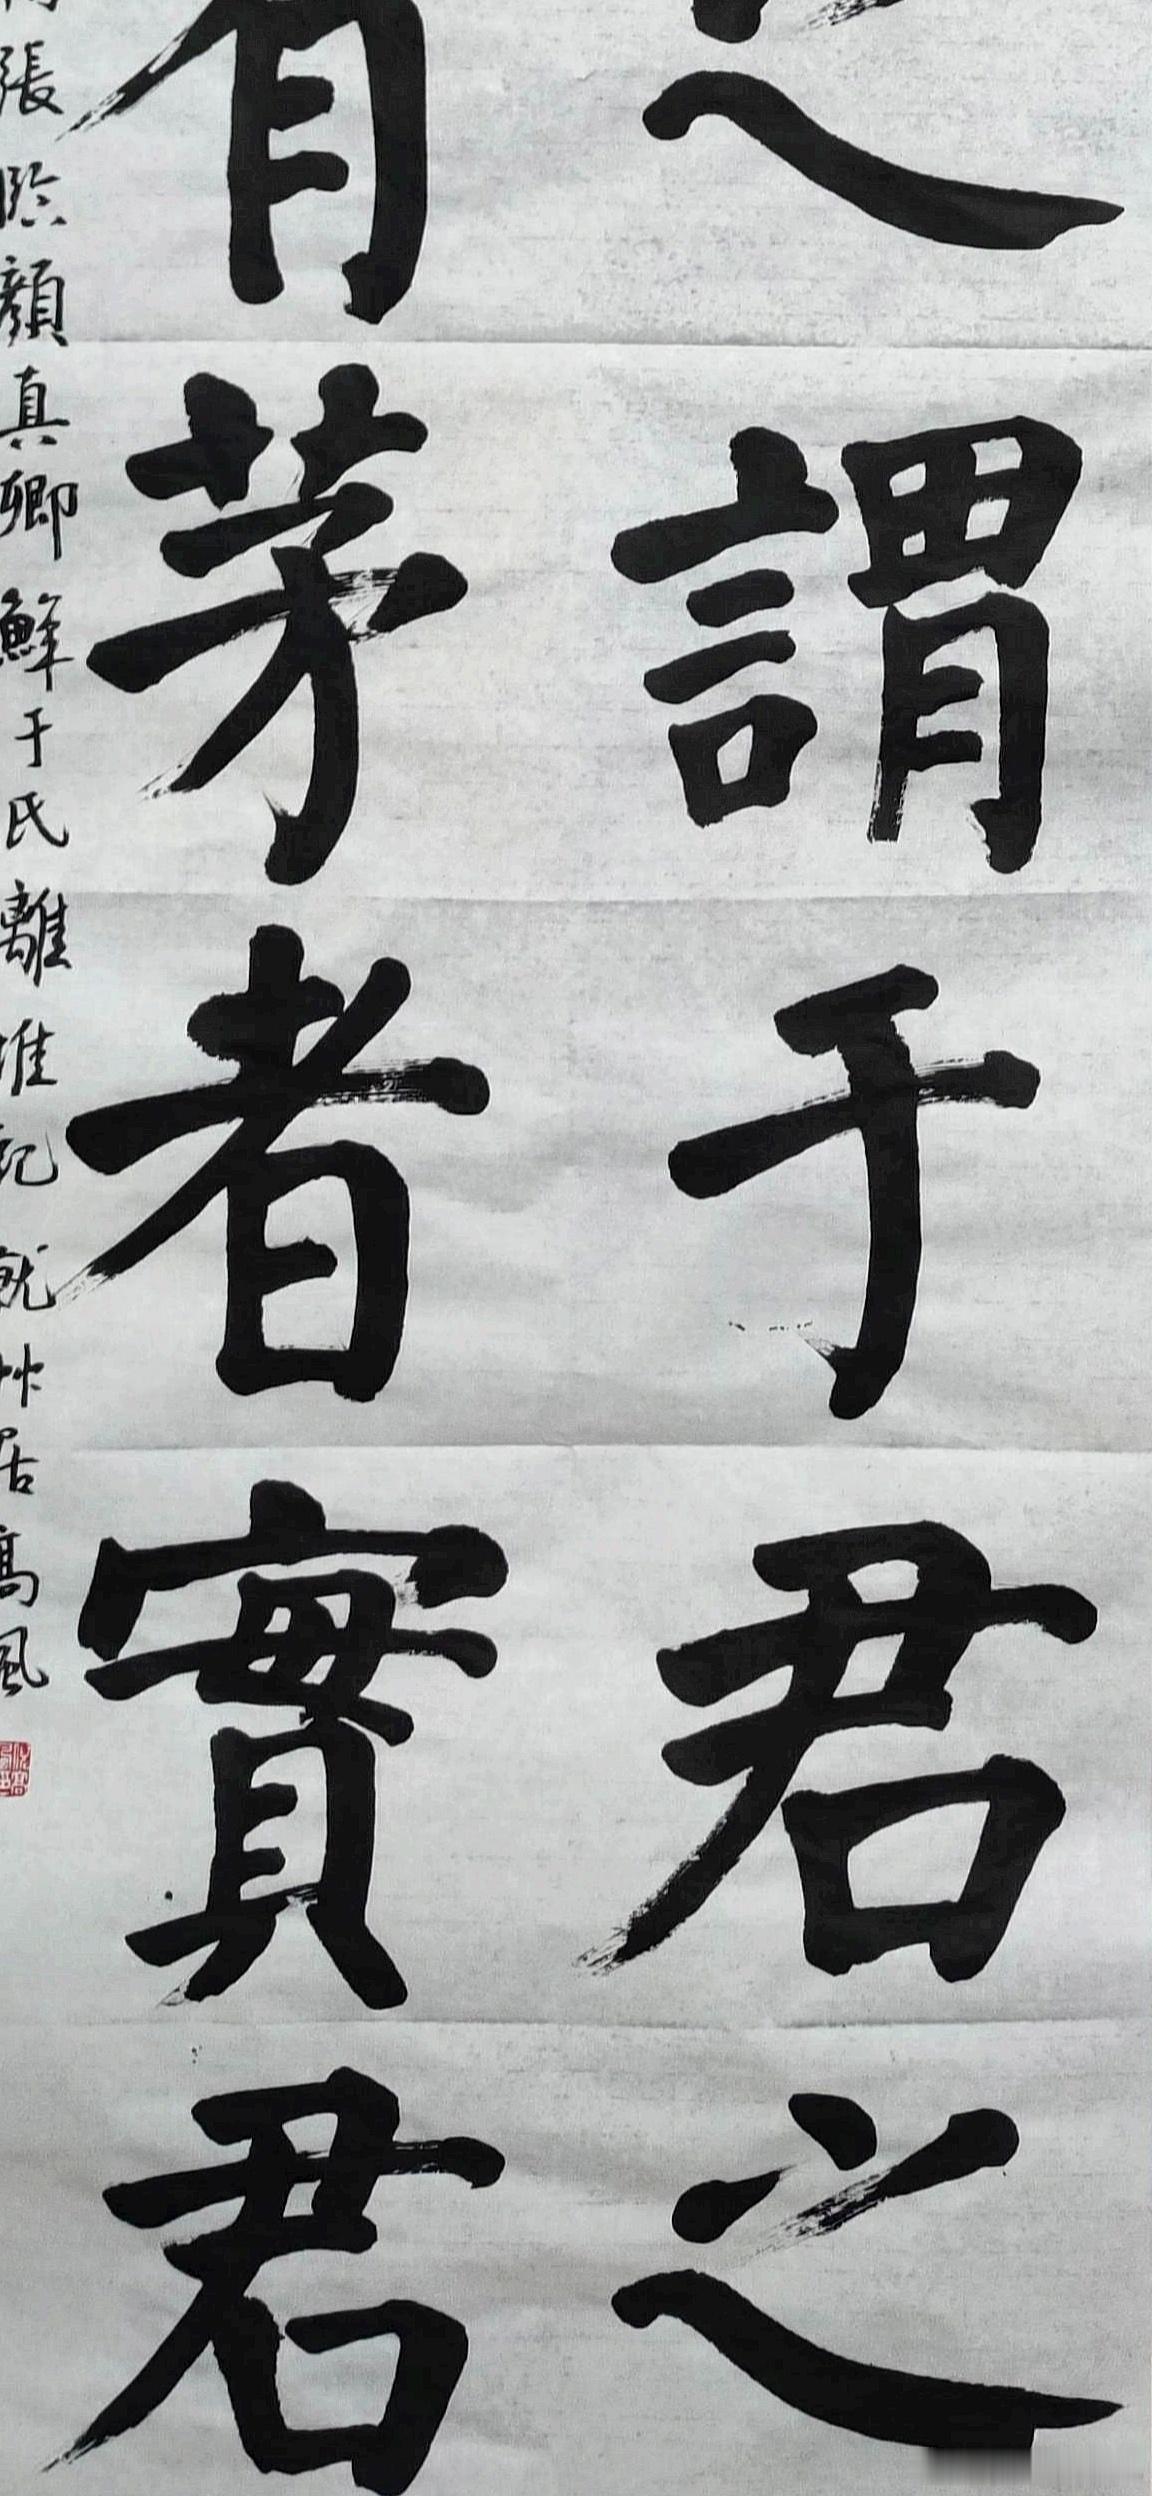 之謂于君之
有者實君
張臨顏真卿鮮于氏離堆記就艸居高風